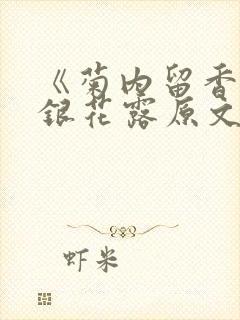 《菊内留香
银花露原文
虾米